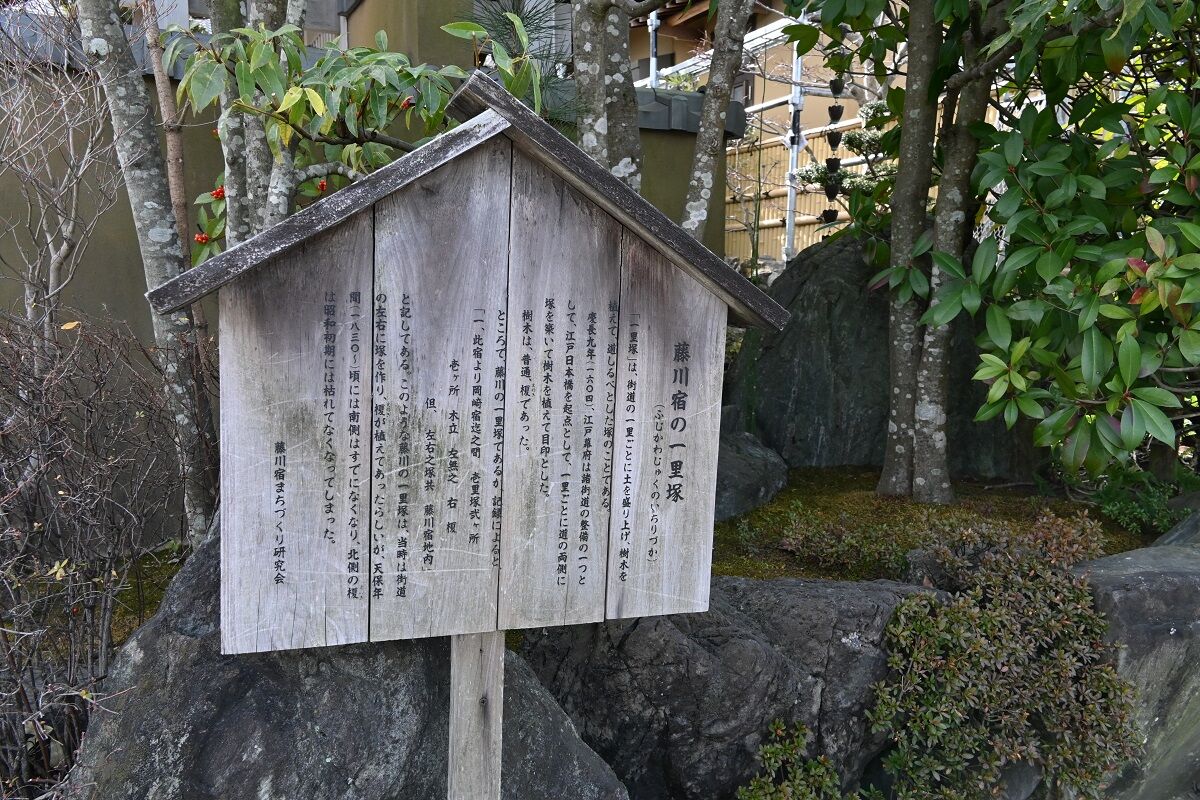 藤川宿の一里塚
（ふじかわじゅくのいちりづか）
「一里塚」は、街道の一里ごとに土を盛り上げ、樹木を
植えて、道しるべとした塚のことである。
慶長九年（一六〇四）、江戸幕府は諸街道の整備の一つと
して、江戸日本橋を起点として、一里ごとに道の両側に
塚を築いて樹木を植えて目印とした。
樹木は、普通、榎であった。
ところで、藤川の一里塚であるが、記録によると
「一、此宿より岡崎宿迄之間 壱里塚弐ヶ所
壱ヶ所 木立 左無之 右 榎
但、左右之塚共 藤川宿地内」
と記してある。このような藤川の一里塚は、当時は街道
の左右に塚を作り、榎が植えてあったらしいが、天保年
間（一八三〇）頃には南側はすでになくなり、北側の榎
は昭和初期には枯れてなくなってしまった。
藤川宿まちづくり研究会